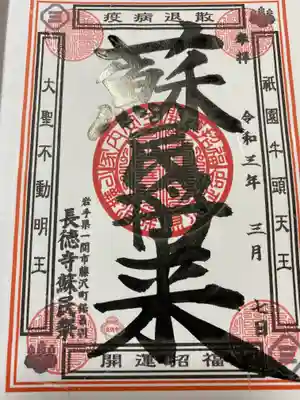 疫病退散
奉拝
祇園牛頭天王
令和三年 三月 七日
蘇民将来
大聖不動明王
岩手県一関市藤沢町
長徳寺蘇民祭
開運招福